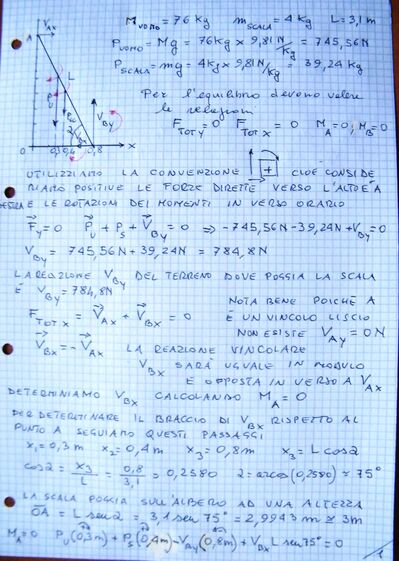 M UOMO = 76 Kg m SCALA = 4 Kg L = 3,1 m
P UOMO = Mg = 76Kg x 9,81 N/Kg = 745,56N
P SCALA = mg = 4Kg x 9,81 N/Kg = 39,24 Kg
Per l'equilibrio devono valere
le
F TOT Y = 0 F TOT X = 0 M A = 0, M B = 0
A V AX
L
V By
B
0 0,3 0,4 0,8 X
UTILIZZIAMO LA CONVENZIONE + CIOÈ CONSIDE
RIAMO POSITIVE LE FORZE DIRETTE VERSO L'ALTO E A
DESTRA E LE ROTAZIONI DEI MOMENTI IN VERSO ORARIO
F Y = 0 P U + P S + V By = 0 => -745,56N - 39,24N + V By = 0
V By = 745,56N + 39,24N = 784,8N
LA REAZIONE V By DEL TERRENO DOVE POGGIA LA SCALA
È V By = 784,8N
NOTA BENE POICHÈ A
È UN VINCOLO LISCIO
NON ESISTE V Ay = 0N
F TOT X = V AX + V BX = 0
V BX = - V AX LA REAZIONE VINCOLARE
V BX SARÀ UGUALE IN MODULO
E OPPOSTA IN VERSO A V AX
DETERMINIAMO V BX CALCOLANDO M A = 0
PER DETERMINARE IL BRACCIO DI V BX RISPETTO AL
PUNTO A SEGUIAMO QUESTI PASSAGGI
X1 = 0,3 m X2 = 0,4 m X3 = 0,8 m X3 = L cos α
cos α = X3 / L = 0,8 / 3,1 = 0,2580 α = arcos (0,2580) ≅ 75°
LA SCALA POGGIA SULL'ALBERO AD UNA ALTEZZA
OA = L sen α = 3,1 sen 75° = 2,9943 m ≅ 3m
M A = 0 P U (0,3m) + P S (0,4m) - V By (0,8m) + V BX L sen 75° = 0
1